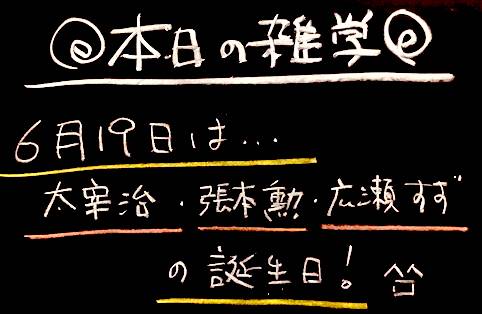 @本日の雑学@
6月19日は...
太宰治・張本勲・広瀬すず
の誕生日!